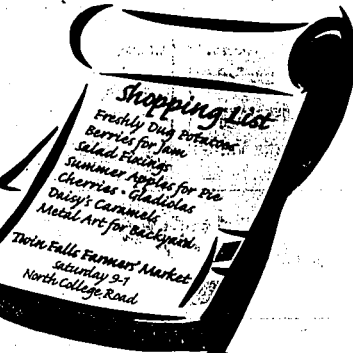 Shopping List
Freshly Dug Potatoes
Berries for Jam
Salad Fixings
Summer Apples for Pie
Cherries • Gladiolas
Daisy's Caramels
Metal Art for Backyard
Twin Falls Farmers' Market
Saturday 9-1
North College Road